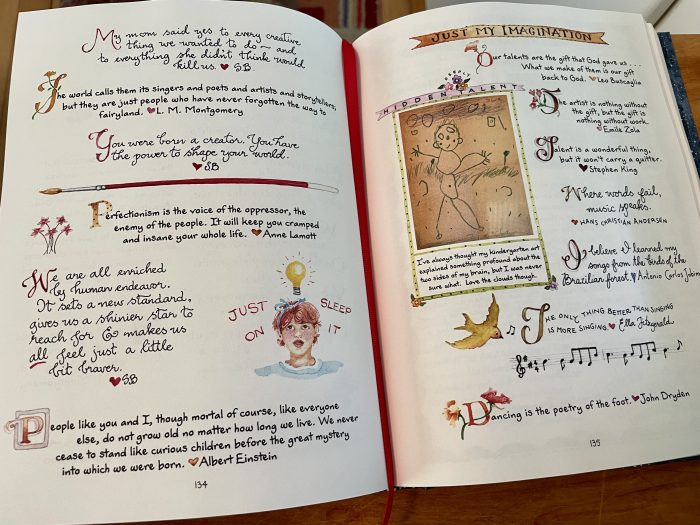 My mom said yes to every creative
thing we wanted to do — and
to everything she didn't think would
kill us. ♥ SB
The world calls them its singers and poets and artists and storytellers,
but they are just people who have never forgotten the way to
fairyland. ♥ L. M. Montgomery
You were born a creator. You have
the power to shape your world.
♥ SB
Perfectionism is the voice of the oppressor, the
enemy of the people. It will keep you cramped
and insane your whole life. ♥ Anne Lamott
We are all enriched
by human endeavor.
It sets a new standard,
gives us a shinier star to
reach for & makes us
all feel just a little
bit braver.
♥ SB
JUST SLEEP
ON IT
People like you and I, though mortal of course, like everyone
else, do not grow old no matter how long we live. We never
cease to stand like curious children before the great mystery
into which we were born. ♥ Albert Einstein
134
JUST MY IMAGINATION
Our talents are the gift that God gave us . . .
What we make of them is our gift
back to God. ♥ Leo Buscaglia
HIDDEN TALENT
I've always thought my kindergarten art
explained something profound about the
two sides of my brain, but I was never
sure what. Love the clouds though.
The artist is nothing without
the gift, but the gift is
nothing without work.
♥ Emile Zola
Talent is a wonderful thing,
but it won't carry a quitter.
♥ Stephen King
Where words fail,
music speaks.
♥ HANS CHRISTIAN ANDERSEN
I believe I learned my
songs from the birds of the
Brazilian forest. ♥ Antonio Carlos Jobim
THE ONLY THING BETTER THAN SINGING
IS MORE SINGING. ♥ Ella Fitzgerald
Dancing is the poetry of the foot. ♥ John Dryden
135